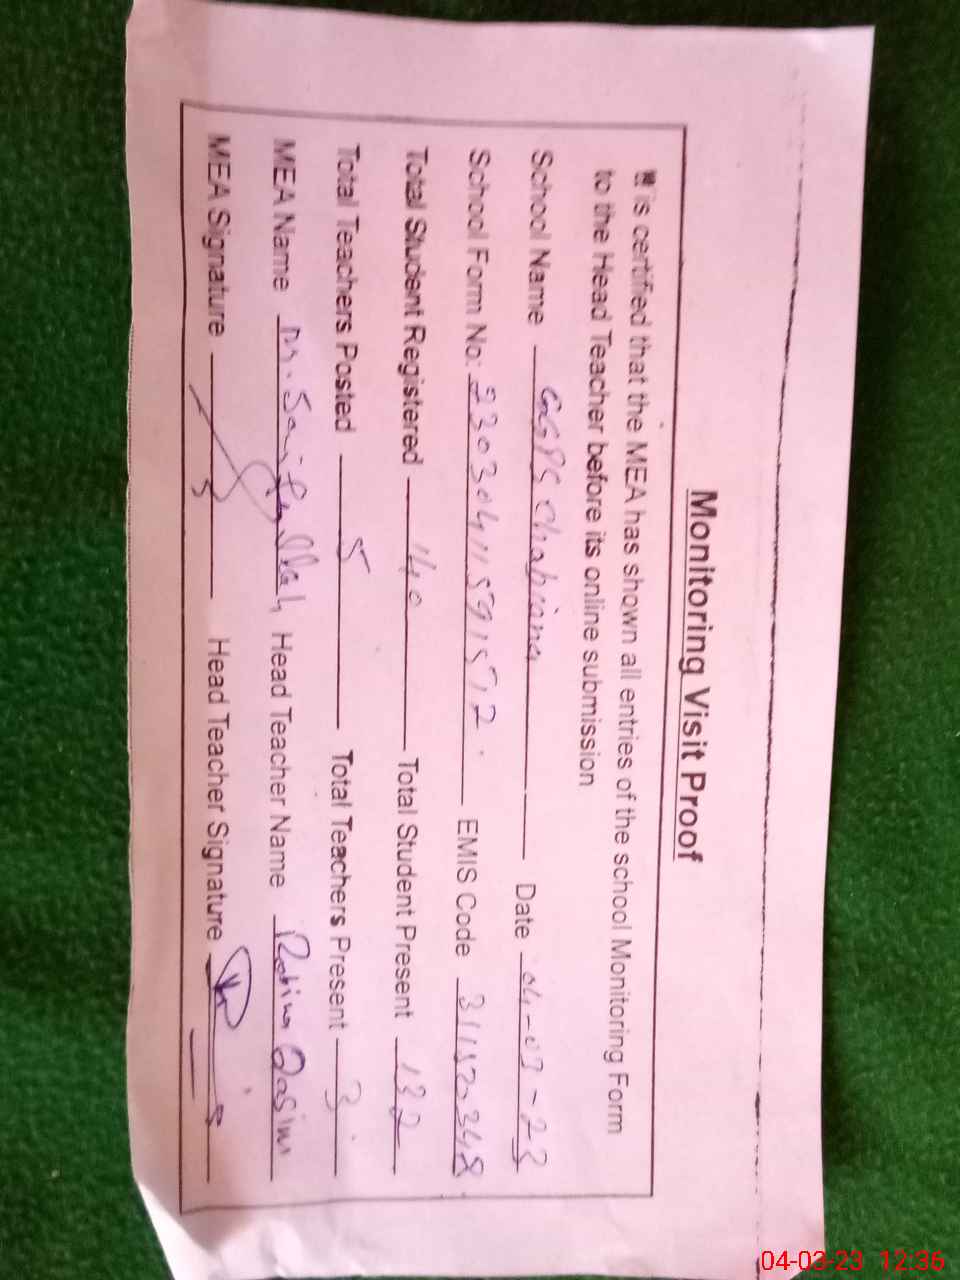 Monitoring Visit Proof
is certified that the MEA has shown all entries of the school Monitoring Form
to the Head Teacher before its online submission
School Name GGPS Chabiana Date 04-03-23
School Form No: EMIS Code 31152348
Total Student Registered 140 Total Student Present 132
Total Teachers Posted 5 Total Teachers Present 3
MEA Name M. Saif ullah Head Teacher Name Robina Qasim
MEA Signature Head Teacher Signature
04-03-23 12:36